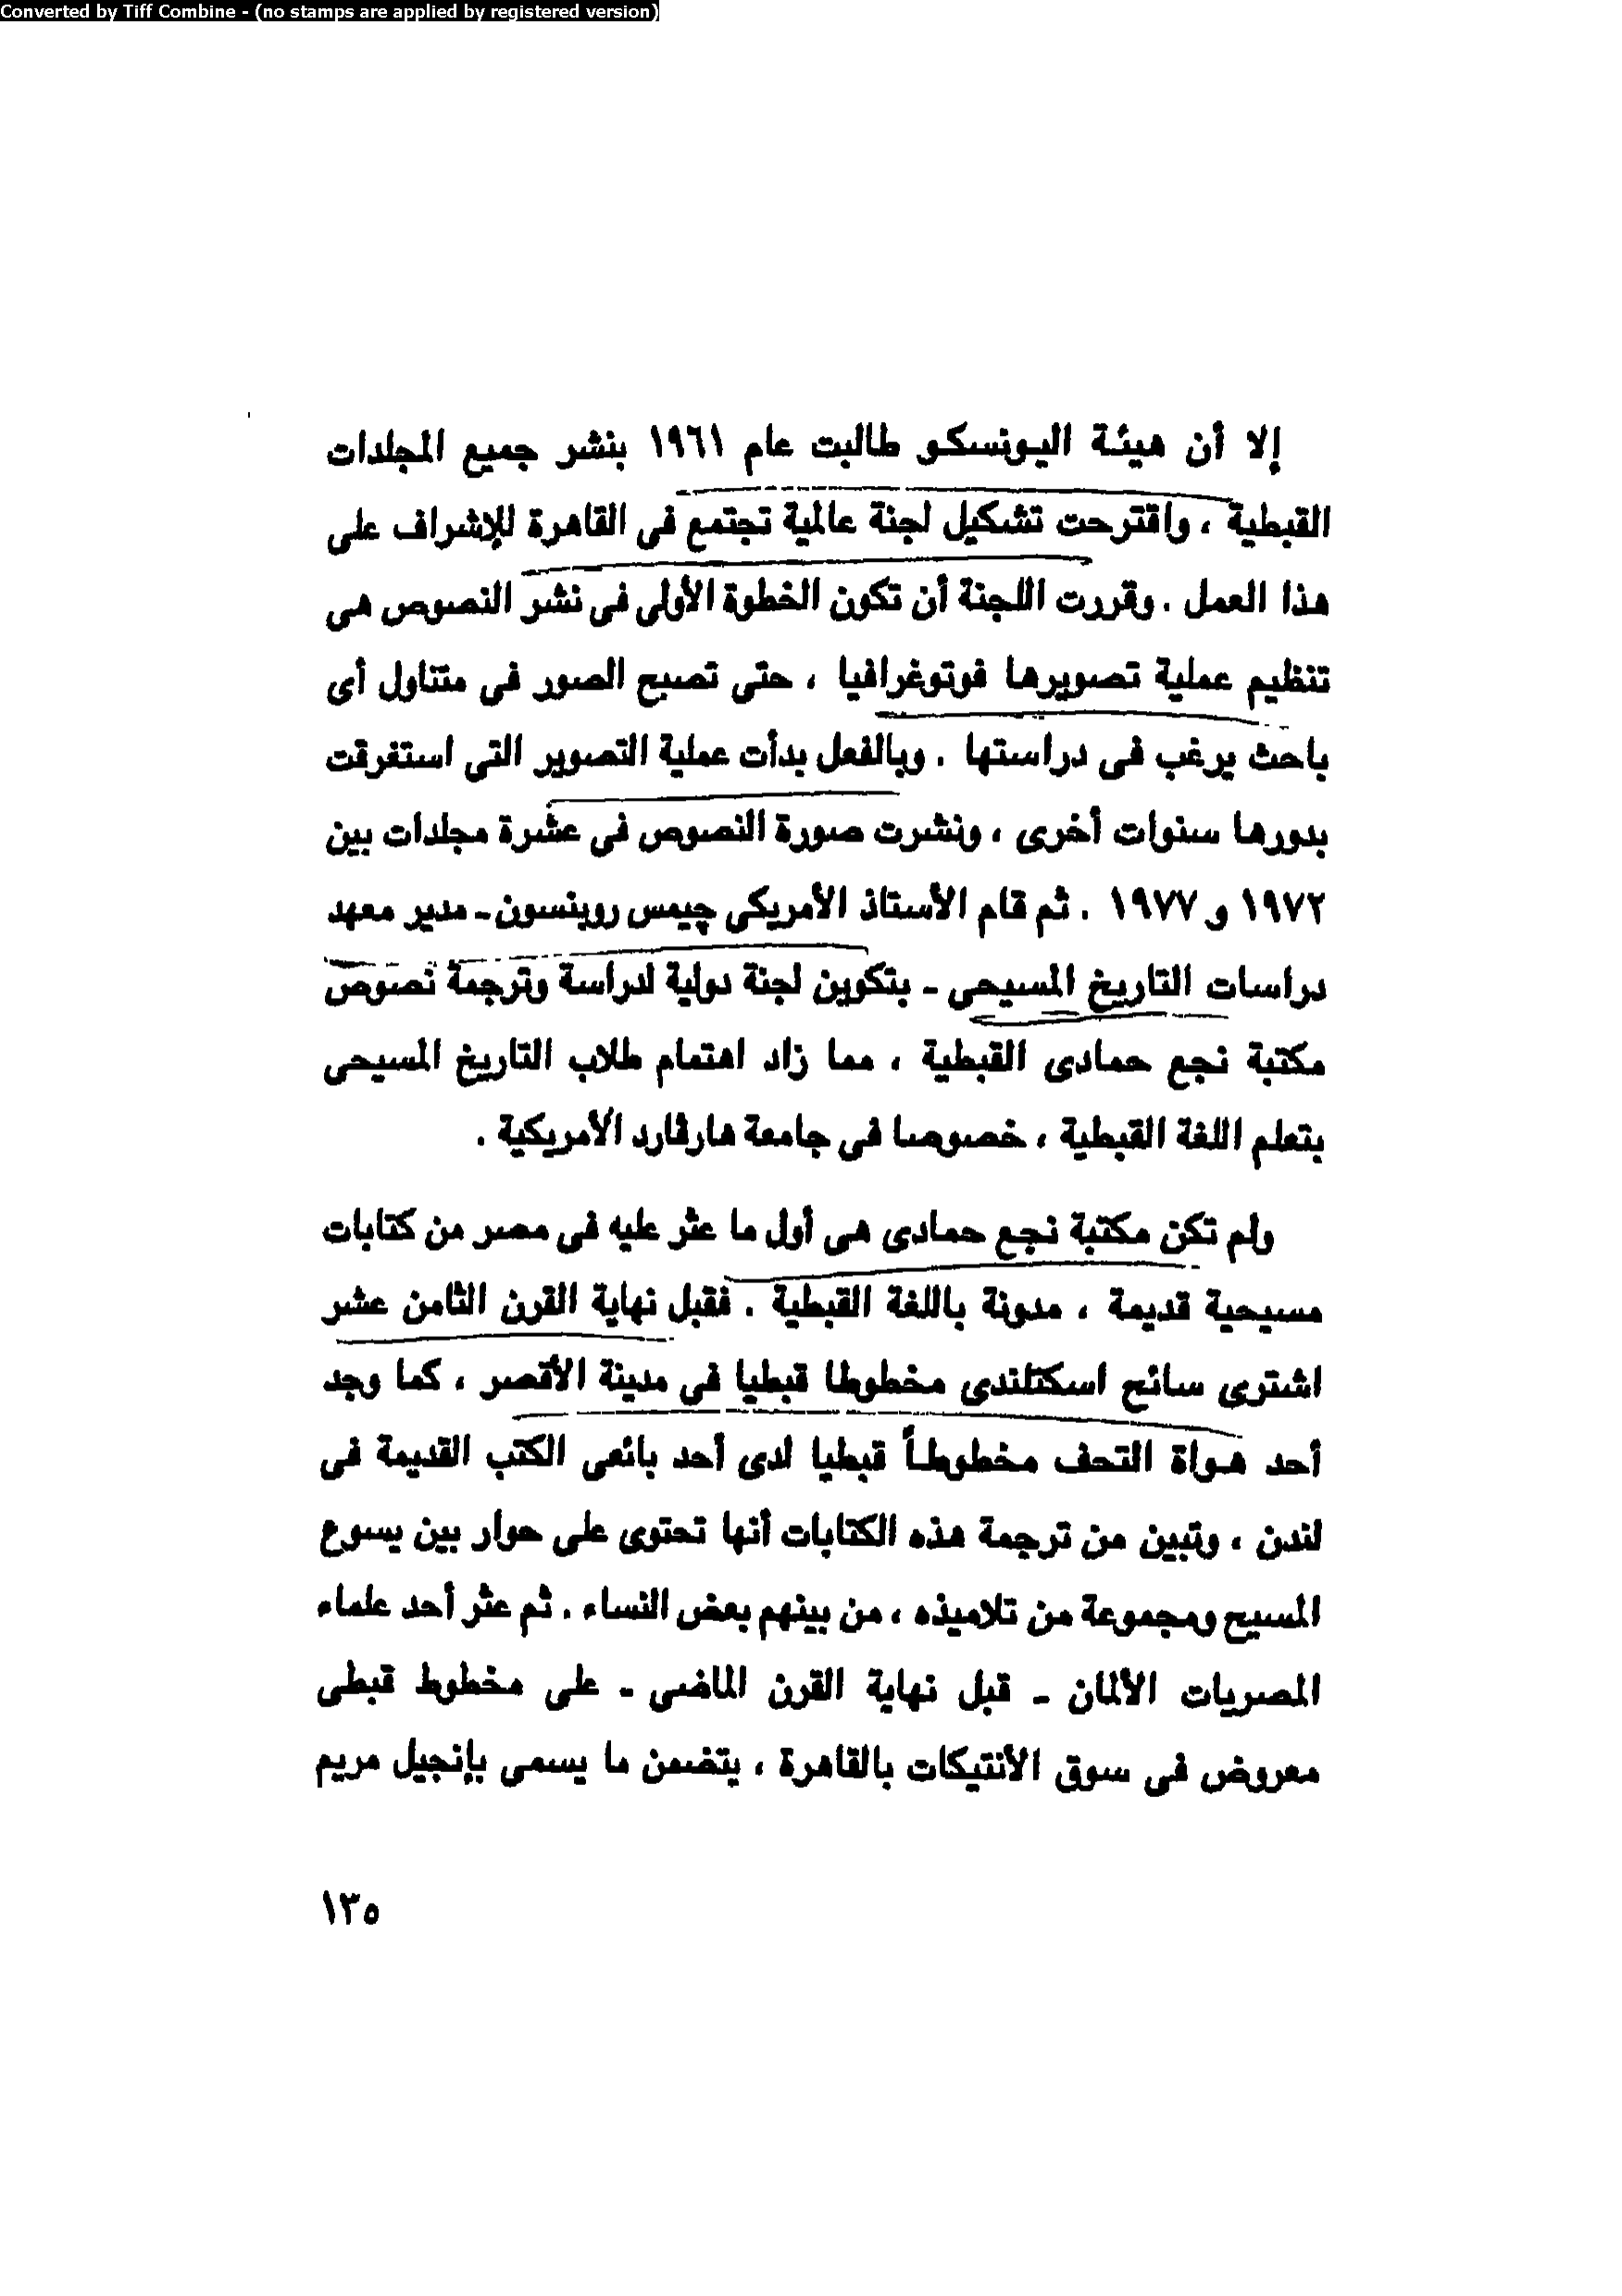 Converted by Tiff Combine - (no stamps are applied by registered version)
إلا أن هيئة اليونسكو طالبت عام ١٩٦١ بنشر جميع المجلدات
القبطية ، واقترحت تشكيل لجنة عالمية تجتمع فى القاهرة للإشراف على
هذا العمل . وقررت اللجنة أن تكون الخطوة الأولى فى نشر النصوص هى
تنظيم عملية تصويرها فوتوغرافيا ، حتى تصبح الصور فى متناول أى
باحث يرغب فى دراستها . وبالفعل بدأت عملية التصوير التى استغرقت
بدورها سنوات أخرى ، ونشرت صورة النصوص فى عشرة مجلدات بين
١٩٧٢ و ١٩٧٧ . ثم قام الأستاذ الأمريكى چيمس روبنسون - مدير معهد
دراسات التاريخ المسيحى - بتكوين لجنة دولية لدراسة وترجمة نصوص
مكتبة نجع حمادى القبطية ، مما زاد اهتمام طلاب التاريخ المسيحى
بتعلم اللغة القبطية ، خصوصا فى جامعة هارڤارد الأمريكية .
ولم تكن مكتبة نجع حمادى هى أول ما عثر عليه فى مصر من كتابات
مسيحية قديمة ، مدونة باللغة القبطية . فقبل نهاية القرن الثامن عشر
اشترى سائح اسكتلندى مخطوطا قبطيا فى مدينة الأقصر ، كما وجد
أحد هواة التحف مخطوطاً قبطيا لدى أحد بائعى الكتب القديمة فى
لندن ، وتبين من ترجمة هذه الكتابات أنها تحتوى على حوار بين يسوع
المسيح ومجموعة من تلاميذه ، من بينهم بعض النساء . ثم عثر أحد علماء
المصريات الألمان - قبل نهاية القرن الماضى - على مخطوط قبطى
معروض فى سوق الأنتيكات بالقاهرة ، يتضمن ما يسمى بإنجيل مريم
١٣٥